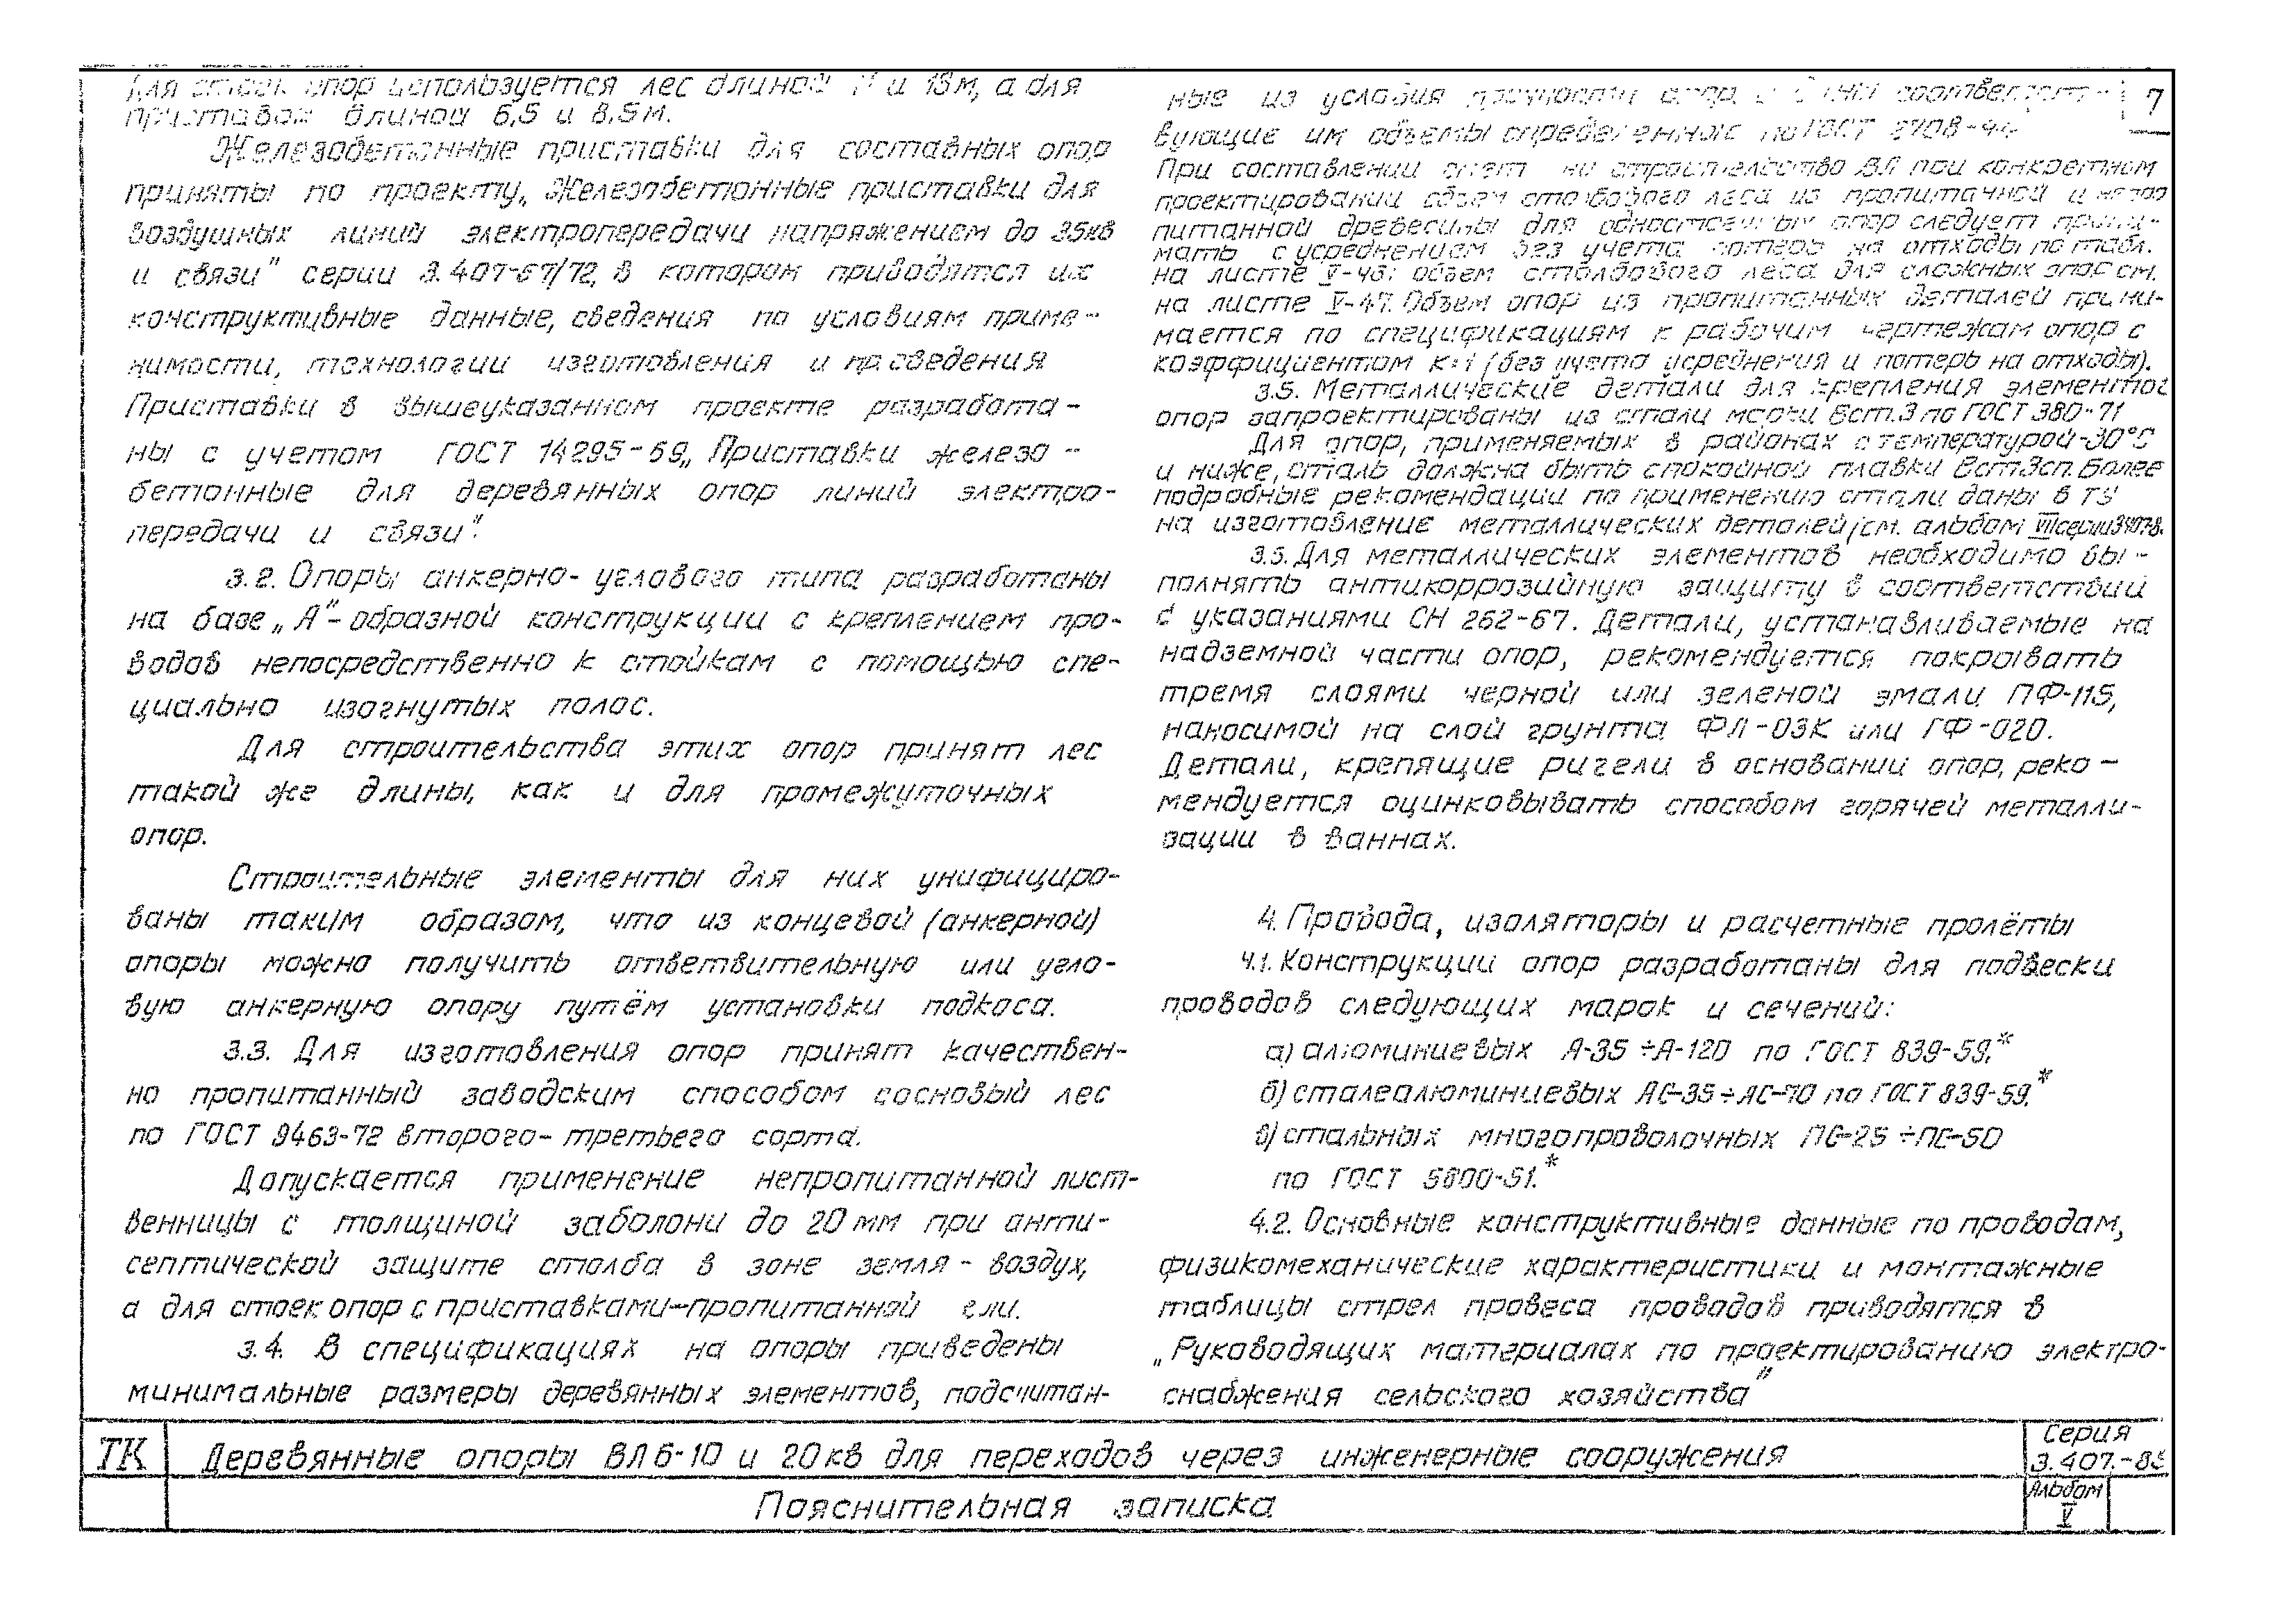 Для стоек опор используется лес длиной и 13м, а для
приставок длиной 6,5 и 8,5м.
Железобетонные приставки для составных опор
приняты по проекту „Железобетонные приставки для
воздушных линий электропередачи напряжением до 35кв
и связи" серии 3.407-67/72, в котором приводятся их
конструктивные данные, сведения по условиям приме-
нимости, технологии изготовления и пр. сведения
Приставки в вышеуказанном проекте разработа-
ны с учетом ГОСТ 14295-69„ Приставки железо-
бетонные для деревянных опор линий электро-
передачи и связи".
3.2. Опоры анкерно-углового типа разработаны
на базе „А"-образной конструкции с креплением про-
водов непосредственно к стойкам с помощью спе-
циально изогнутых полос.
Для строительства этих опор принят лес
такой же длины, как и для промежуточных
опор.
Строительные элементы для них унифициро-
ваны таким образом, что из концевой (анкерной)
опоры можно получить ответвительную или угло-
вую анкерную опору путём установки подкоса.
3.3. Для изготовления опор принят качествен-
но пропитанный заводским способом сосновый лес
по ГОСТ 9463-72 второго-третьего сорта.
Допускается применение непропитанной лист-
венницы с толщиной заболони до 20мм при анти-
септической защите столба в зоне земля - воздух,
а для стоек опор с приставками-пропитанной ели.
3.4. В спецификациях на опоры приведены
минимальные размеры деревянных элементов, подсчитан-
ные из условия прочности опор и соответст-
вующие им объемы определенные по ГОСТ 2708-44
При составлении смет на строительство ВЛ при конкретном
проектировании объем столбового леса из пропитанной и непро
питанной древесины для одностоечных опор следует прини-
мать с усреднением без учета потерь на отходы по табл.
на листе V-46; объем столбового леса для сложных опор см.
на листе V-47. Объем опор из пропитанных деталей прини-
мается по спецификациям к рабочим чертежам опор с
коэффициентом К=1 (без учета усреднения и потерь на отходы).
3.5. Металлические детали для крепления элементов
опор запроектированы из стали марки Вст.3 по ГОСТ 380-71
Для опор, применяемых в районах с температурой-30°С
и ниже, сталь должна быть спокойной плавки ВстЗсп. Более
подробные рекомендации по применению стали даны в ТУ
на изготовление металлических деталей (см. альбом VII серии
3.5. Для металлических элементов необходимо вы-
полнять антикоррозийную защиту в соответствии
с указаниями СН 262-67. Детали, устанавливаемые на
надземной части опор, рекомендуется покрывать
тремя слоями черной или зеленой эмали ПФ-115,
наносимой на слой грунта ФЛ-03К или ГФ-020.
Детали, крепящие ригели в основании опор, реко-
мендуется оцинковывать способом горячей металли-
зации в ваннах.
4. Провода, изоляторы и расчетные пролёты
4.1. Конструкции опор разработаны для подвески
проводов следующих марок и сечений:
а) алюминиевых А-35 ÷А-120 по ГОСТ 839-59.*
б) сталеалюминиевых АС-35 ÷ АС-70 по ГОСТ 839-59.*
в) стальных многопроволочных ПС-25 ÷ПС-50
по ГОСТ 5800-51.*
4.2. Основные конструктивные данные по проводам,
физикомеханические характеристики и монтажные
таблицы стрел провеса проводов приводятся в
„Руководящих материалах по проектированию электро-
снабжения сельского хозяйства"
7
ТК
Деревянные опоры ВЛ 6-10 и 20кв для переходов через инженерные сооружения
Пояснительная записка
Серия
3.407.-85
Альбом
V